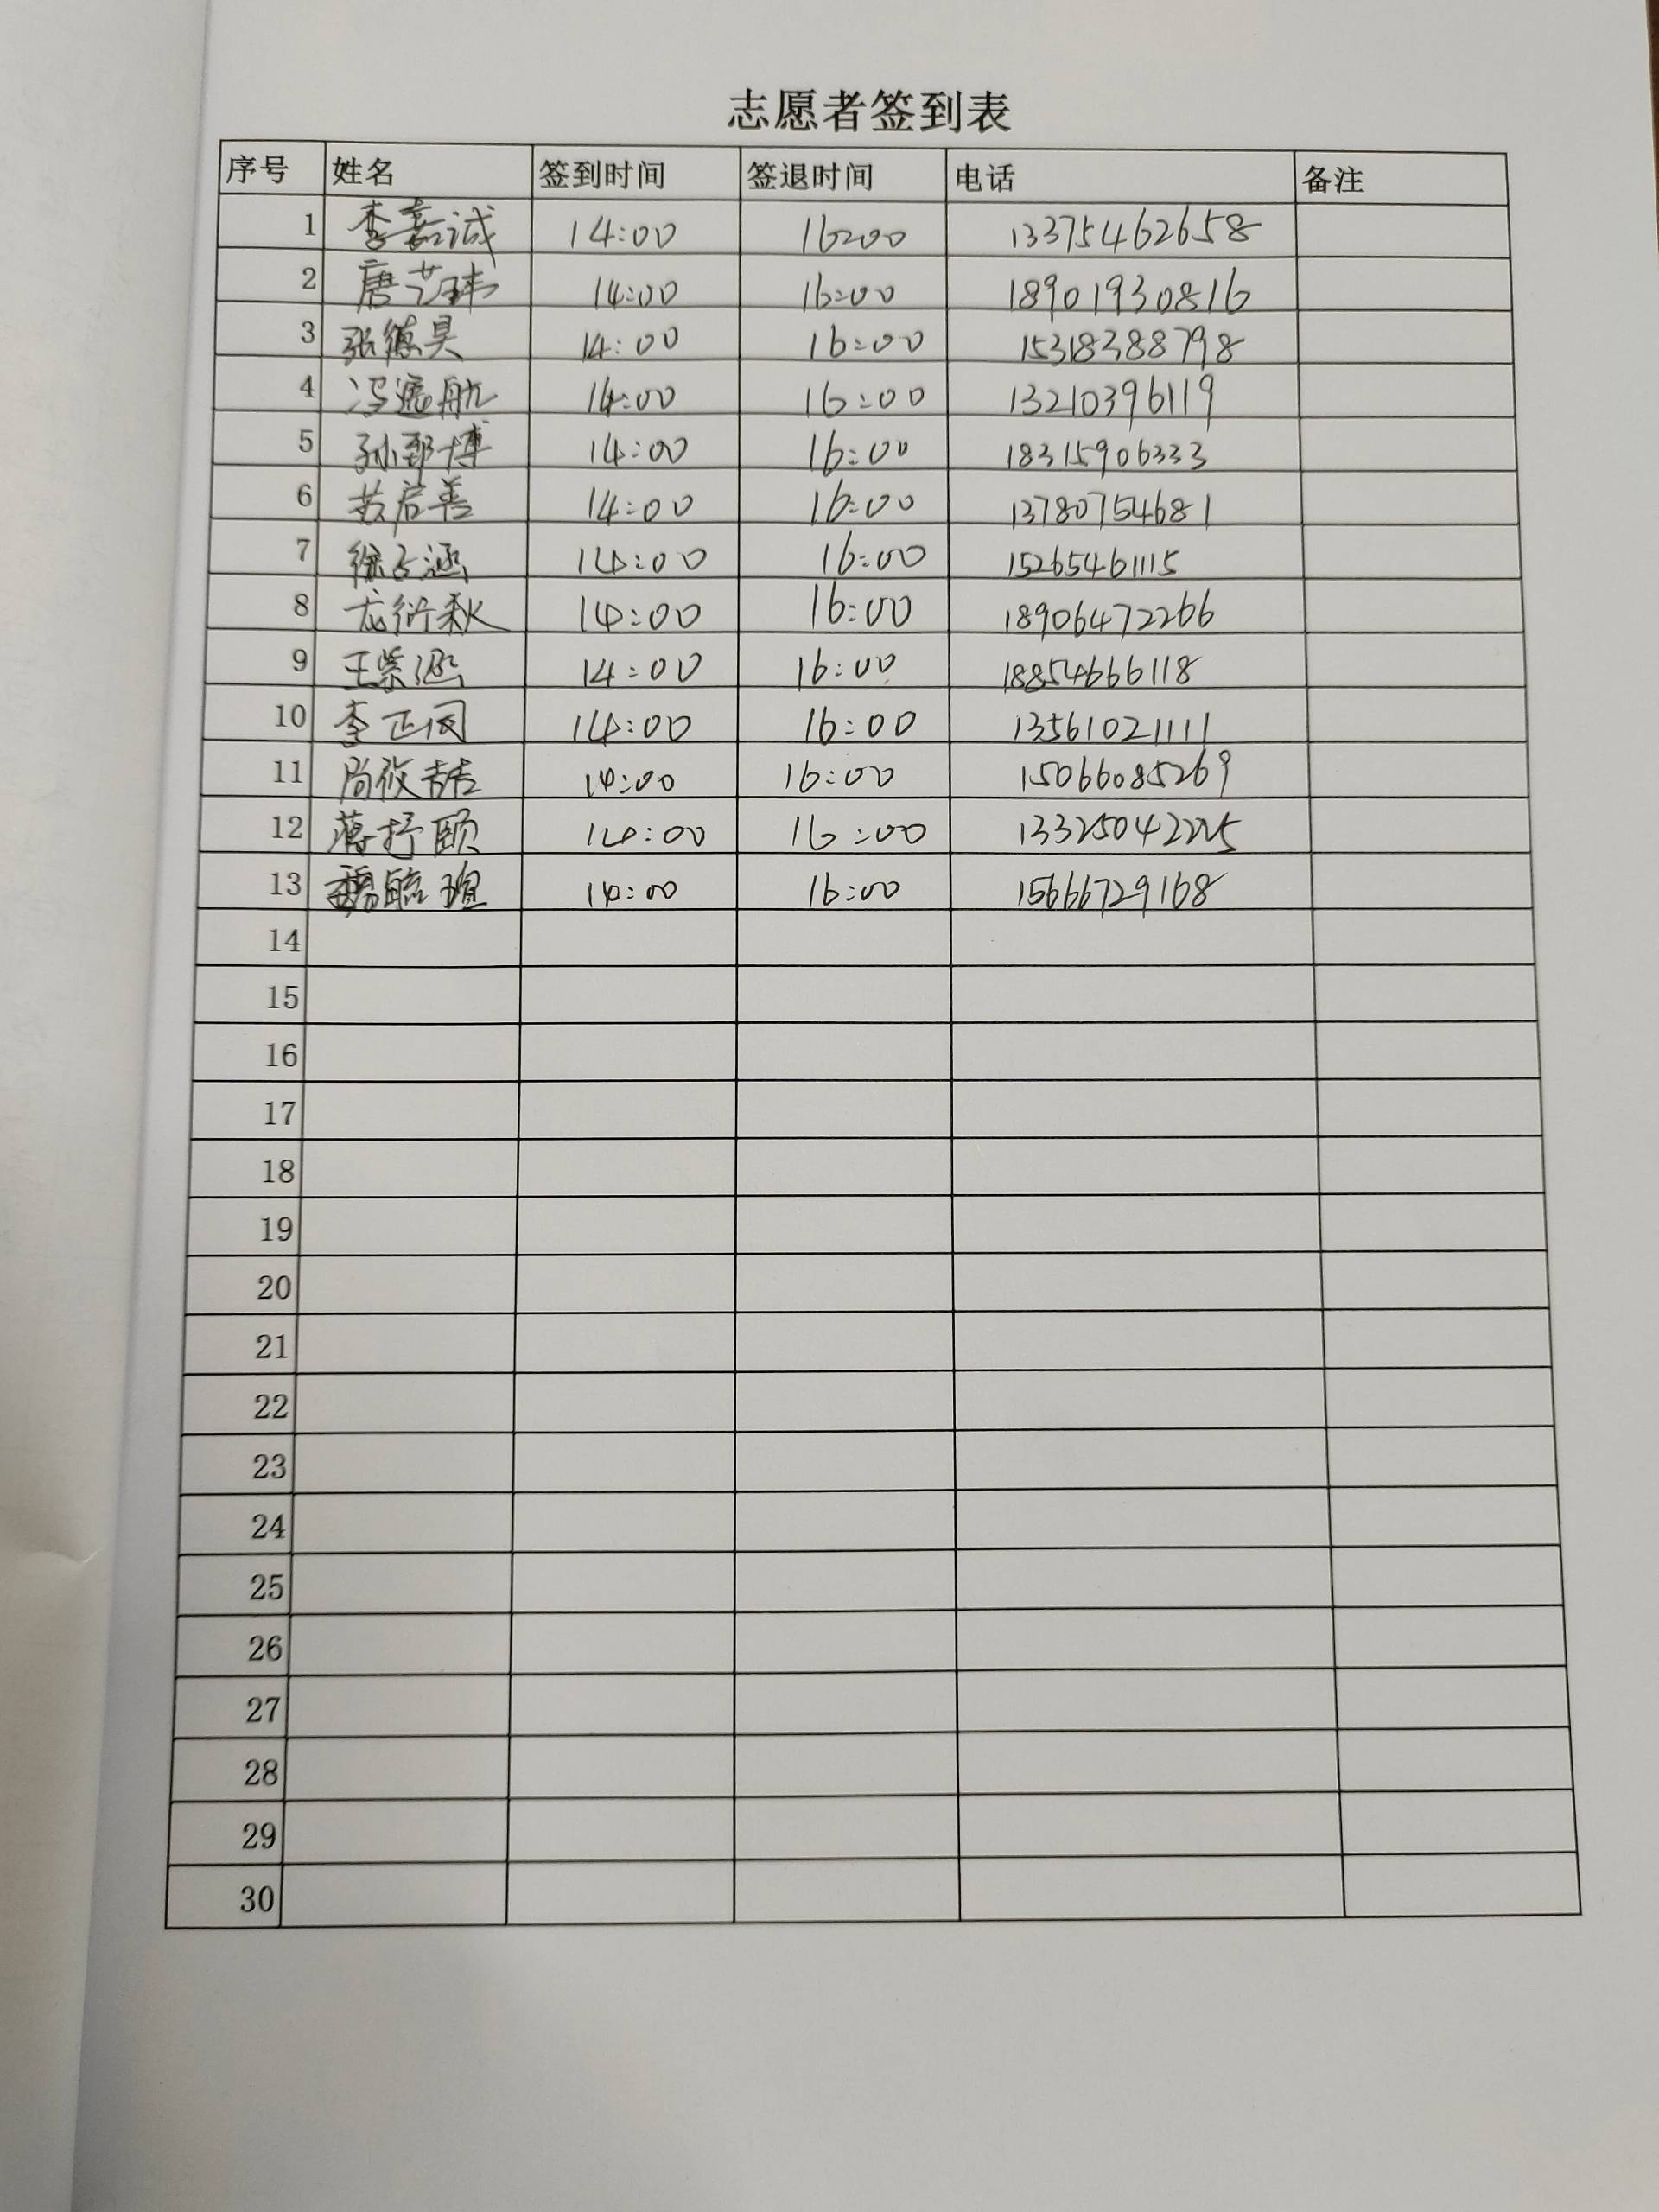 志愿者签到表
序号 姓名 签到时间 签退时间 电话 备注
1 李嘉诚 14:00 16:00 13375462658
2 唐艺玮 14:00 16:00 18901930816
3 张德昊 14:00 16:00 15318388798
4 冯远航 14:00 16:00 13210396119
5 孙郅博 14:00 16:00 18315906333
6 苏启善 14:00 16:00 13780754681
7 徐子涵 14:00 16:00 15265461115
8 龙衍秋 14:00 16:00 18906472266
9 王紫涵 14:00 16:00 18854666118
10 李正 14:00 16:00 13561021111
11 尚 14:00 16:00 15066085269
12 蒋抒颐 14:00 16:00 13325042225
13 魏毓瑄 14:00 16:00 15666729168
14
15
16
17
18
19
20
21
22
23
24
25
26
27
28
29
30